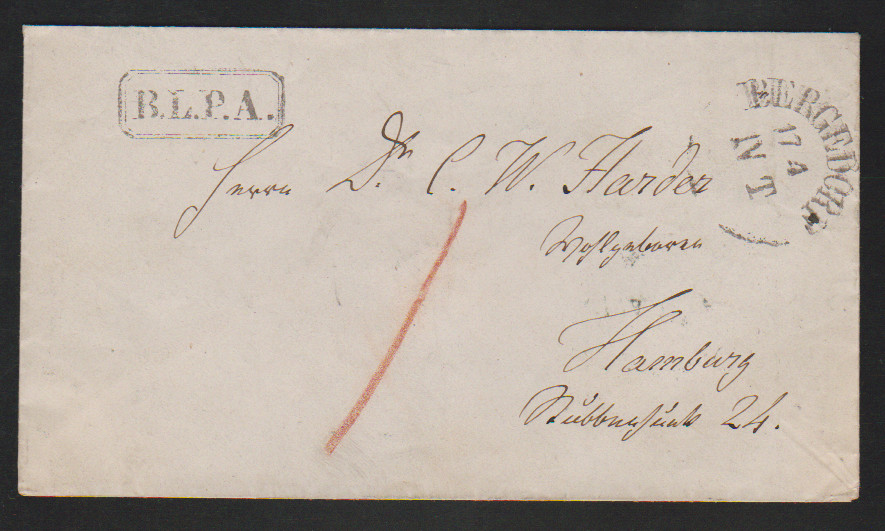 B.L.P.A.
BERGEDORF
17 4
NT
Herrn Dr. C. W. Harder
Wohlgeboren
Hamburg
24.